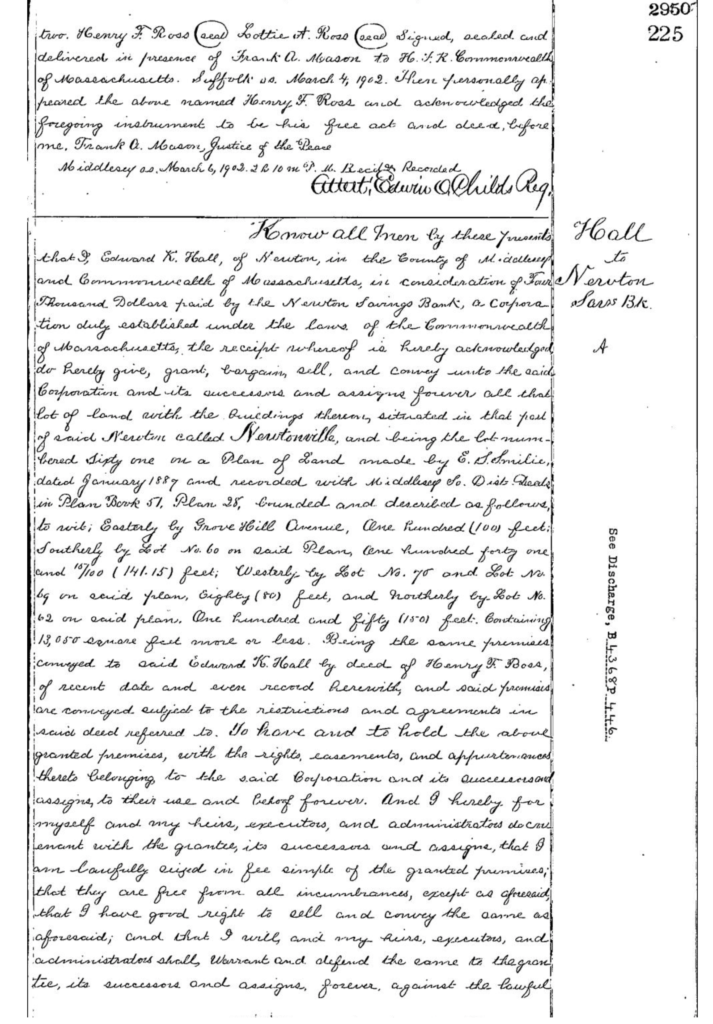 2950
225
two. Henry F. Ross (seal) Lottie A. Ross (seal) Signed, sealed and
delivered in presence of Frank A. Mason to H. F. R. Commonwealth
of Massachusetts. Suffolk ss. March 4, 1902. Then personally ap
peared the above named Henry F. Ross and acknowledged the
foregoing instrument to be his free act and deed, before
me, Frank A. Mason, Justice of the Peace
Middlesex ss. March 6, 1902. 2 h 10 m P. M. Rec'd & Recorded
Attest, Edwin O. Childs Reg.
Know all Men by these Presents
that I, Edward K. Hall, of Newton, in the County of Middlesex
and Commonwealth of Massachusetts, in consideration of Four
Thousand Dollars paid by the Newton Savings Bank, a Corpora
tion duly established under the laws of the Commonwealth
of Massachusetts, the receipt whereof is hereby acknowledged
do hereby give, grant, bargain, sell, and convey unto the said
Corporation and its successors and assigns forever all that
lot of land with the buildings thereon, situated in that part
of said Newton called Newtonville, and being the lot num-
bered Sixty one on a Plan of Land made by E. S. Smilie,
dated January 1887 and recorded with Middlesex So. Dist. Deeds
in Plan Book 51, Plan 28, bounded and described as follows,
to wit; Easterly by Grove Hill Avenue, One hundred (100) feet;
Southerly by Lot No. 60 on said Plan, One hundred forty one
and 15/100 (141.15) feet; Westerly by Lot No. 70 and Lot No.
69 on said plan, Eighty (80) feet, and Northerly by Lot No.
62 on said plan, One hundred and fifty (150) feet. Containing
13,050 square feet more or less. Being the same premises
conveyed to said Edward K. Hall by deed of Henry F. Ross,
of recent date and even record herewith, and said premises
are conveyed subject to the restrictions and agreements in
said deed referred to. To have and to hold the above
granted premises, with the rights, easements, and appurtenances
thereto belonging, to the said Corporation and its successors and
assigns, to their use and behoof forever. And I hereby for
myself and my heirs, executors, and administrators do cov
enant with the grantee, its successors and assigns, that I
am lawfully seized in fee simple of the granted premises;
that they are free from all incumbrances, except as aforesaid,
that I have good right to sell and convey the same as
aforesaid; and that I will, and my heirs, executors, and
administrators shall, Warrant and defend the same to the gran
tee, its successors and assigns, forever, against the lawful
Hall
to
Newton
Savs Bk.
A
See Discharge, B 4368 P 446